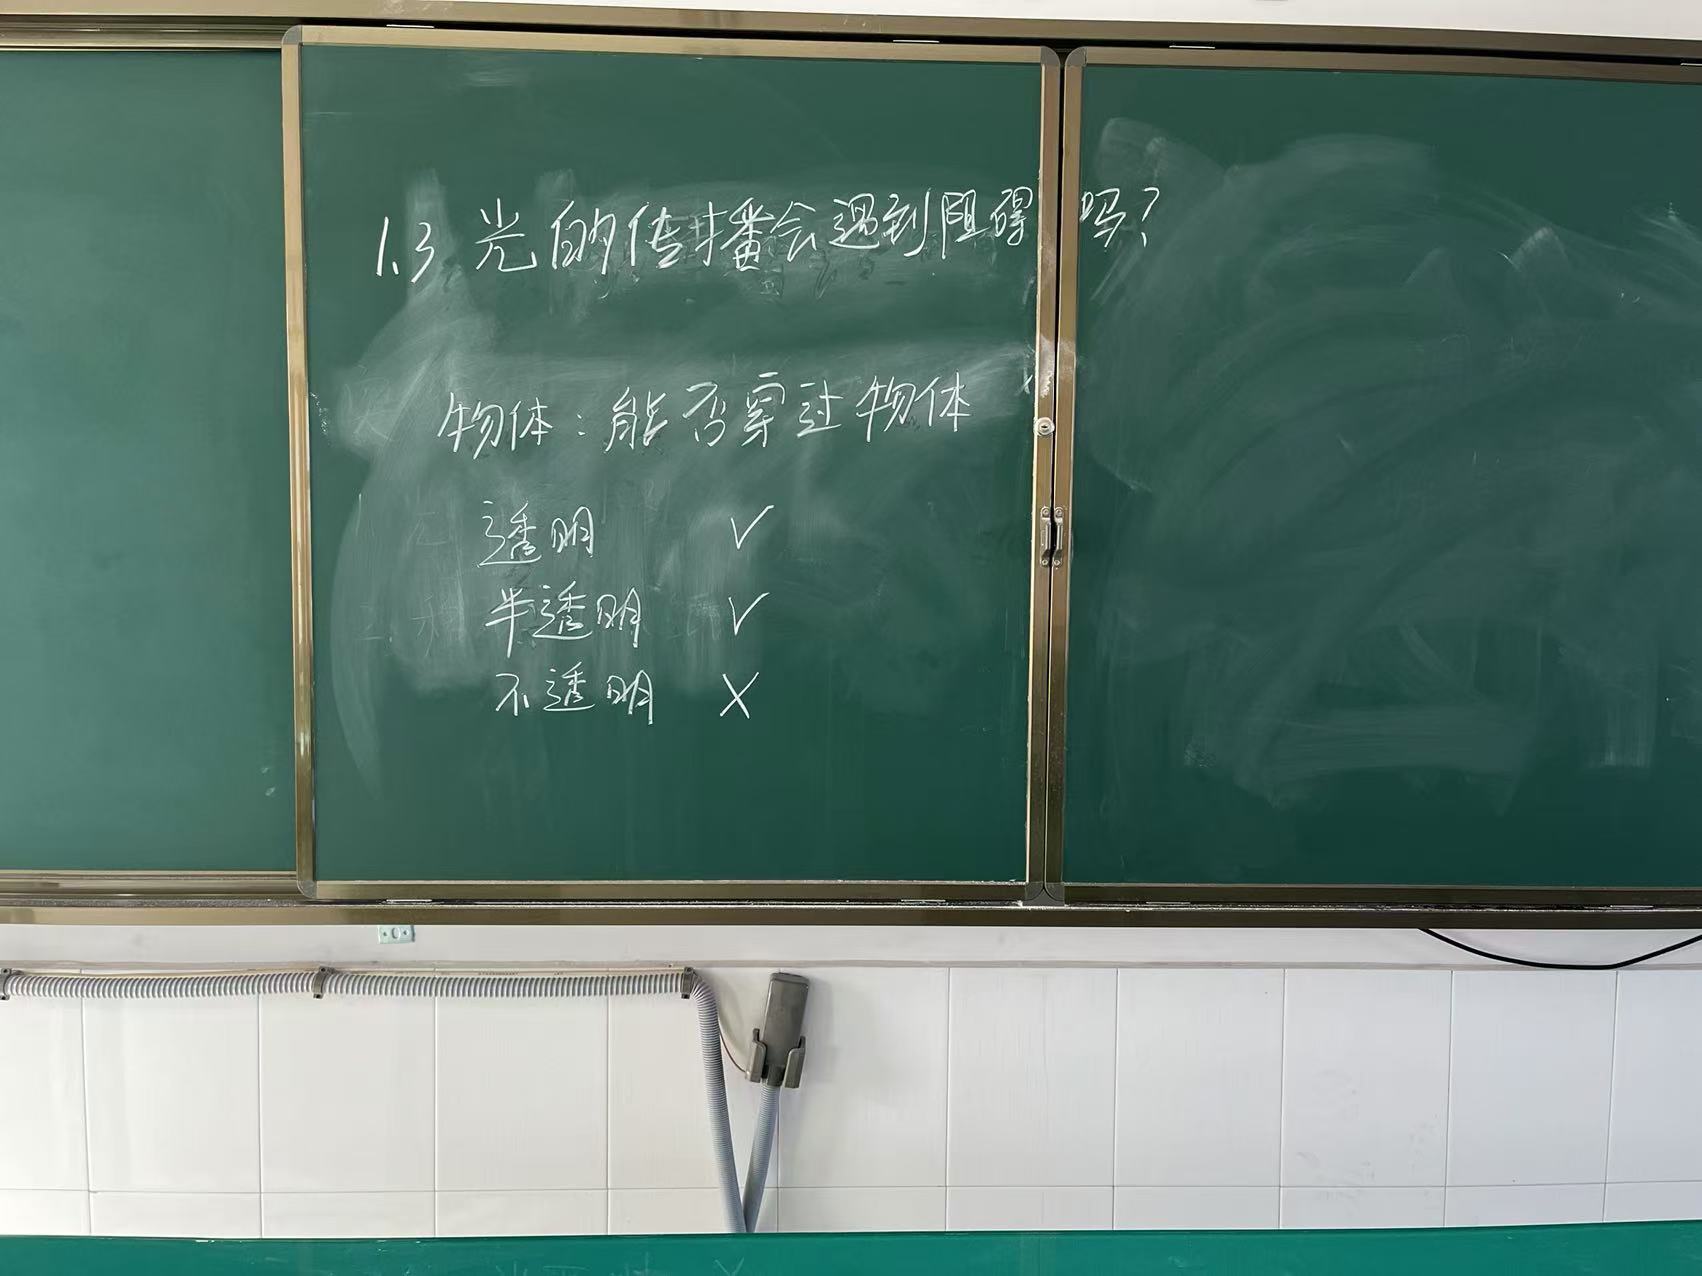 1.3 光的传播会遇到阻碍吗?
物体:能否穿过物体
透明 √
半透明 √
不透明 X